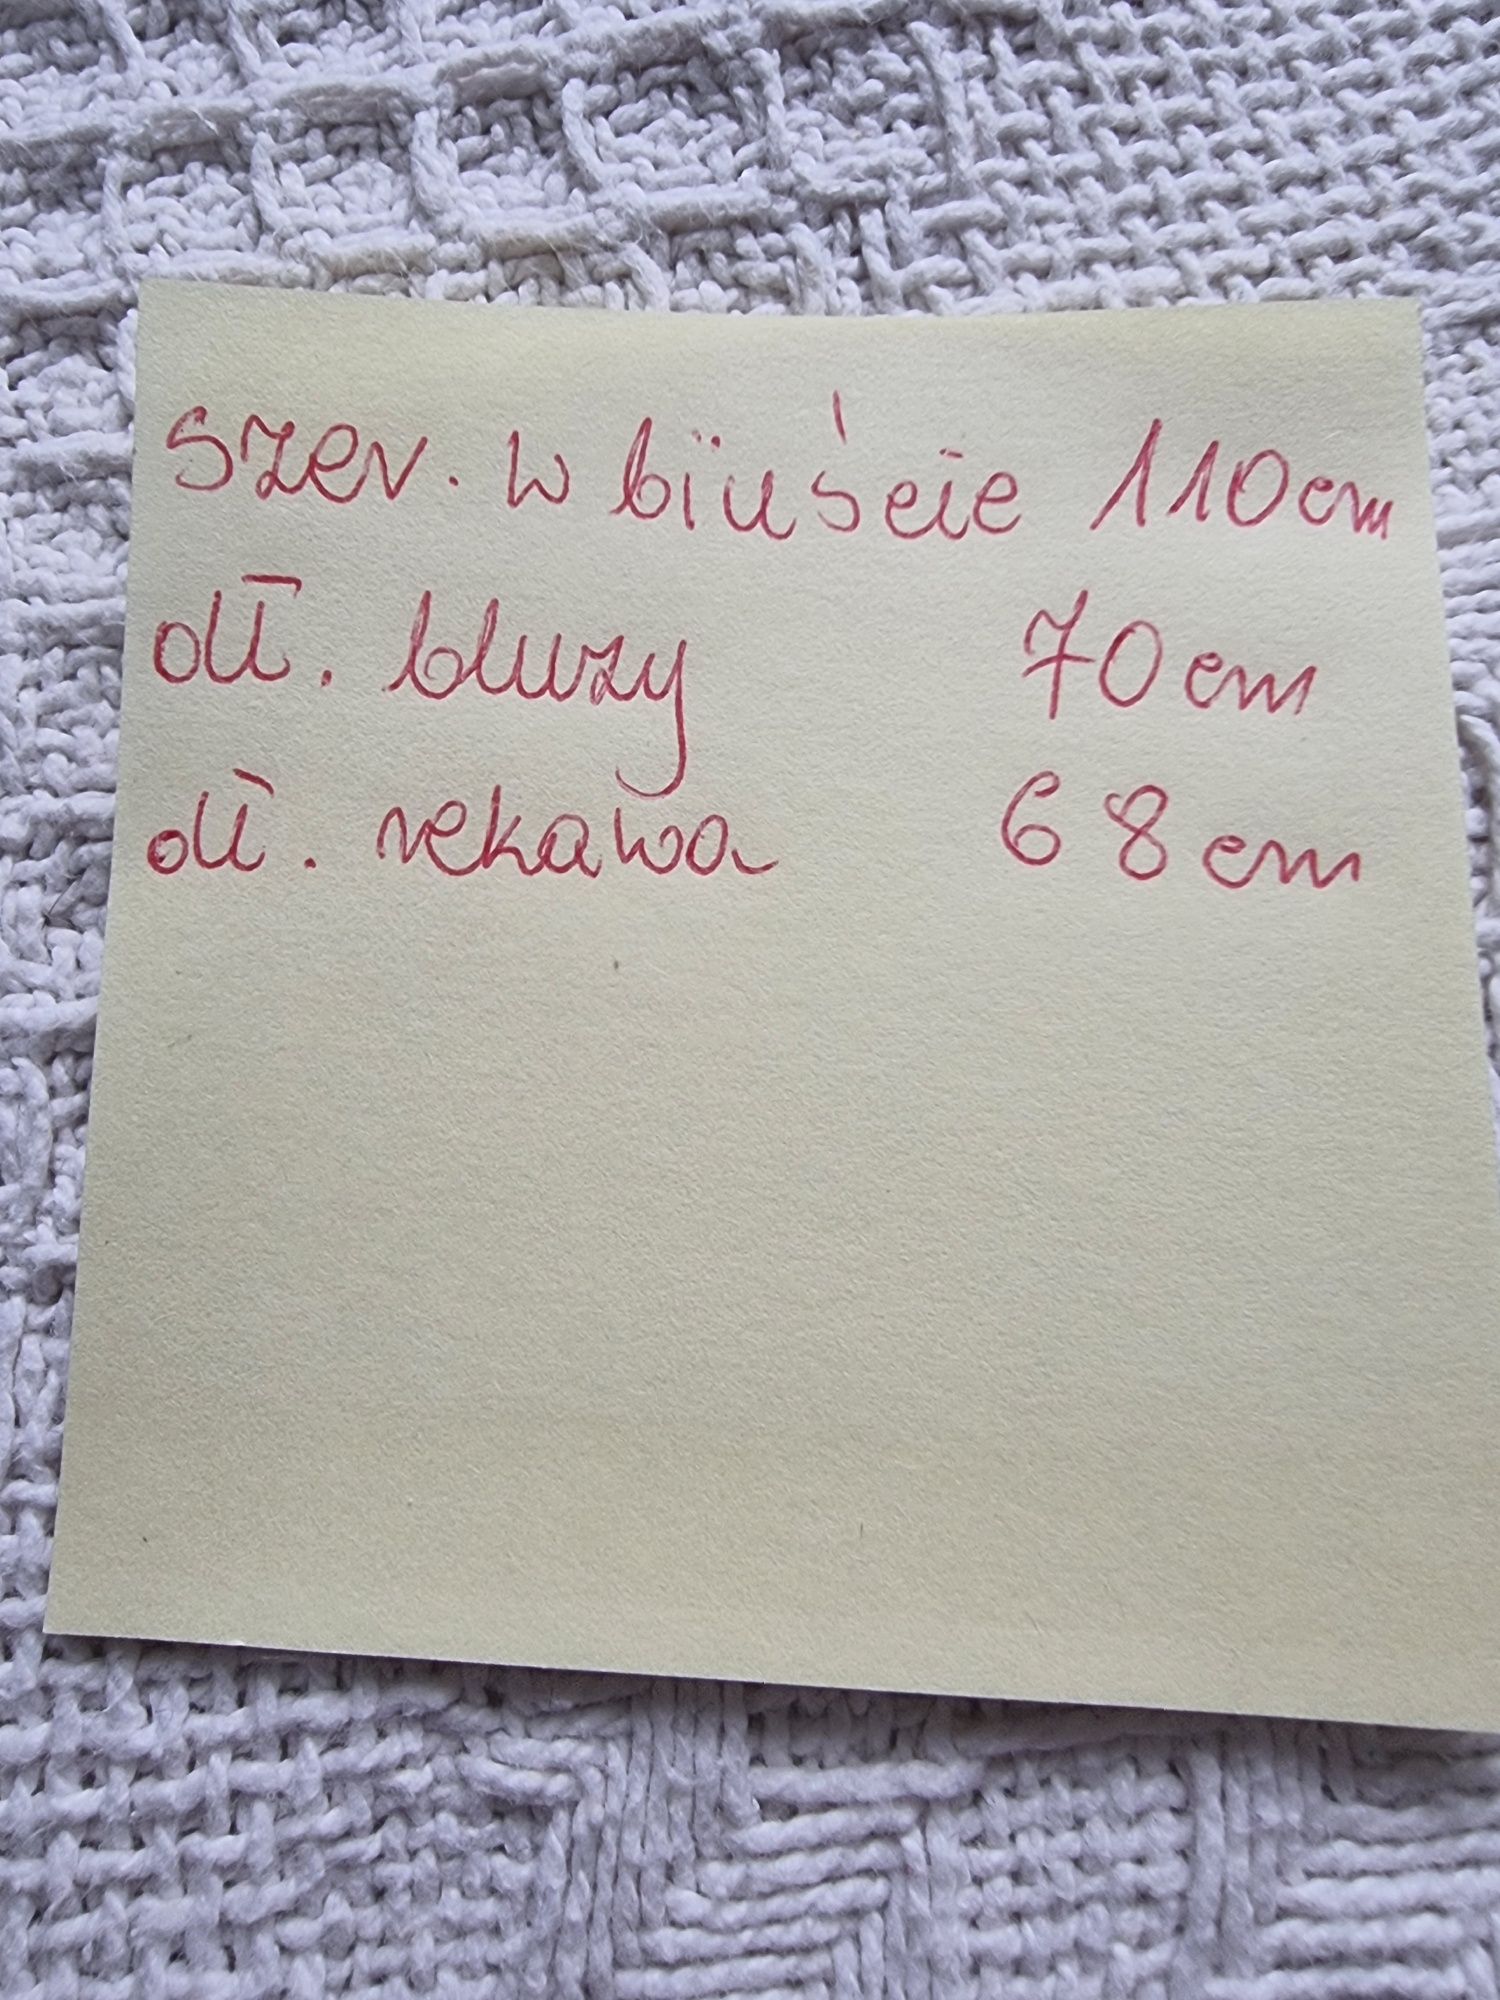 szer. w biuście 110cm
dł. bluzy 70cm
dł. rekawa 68cm